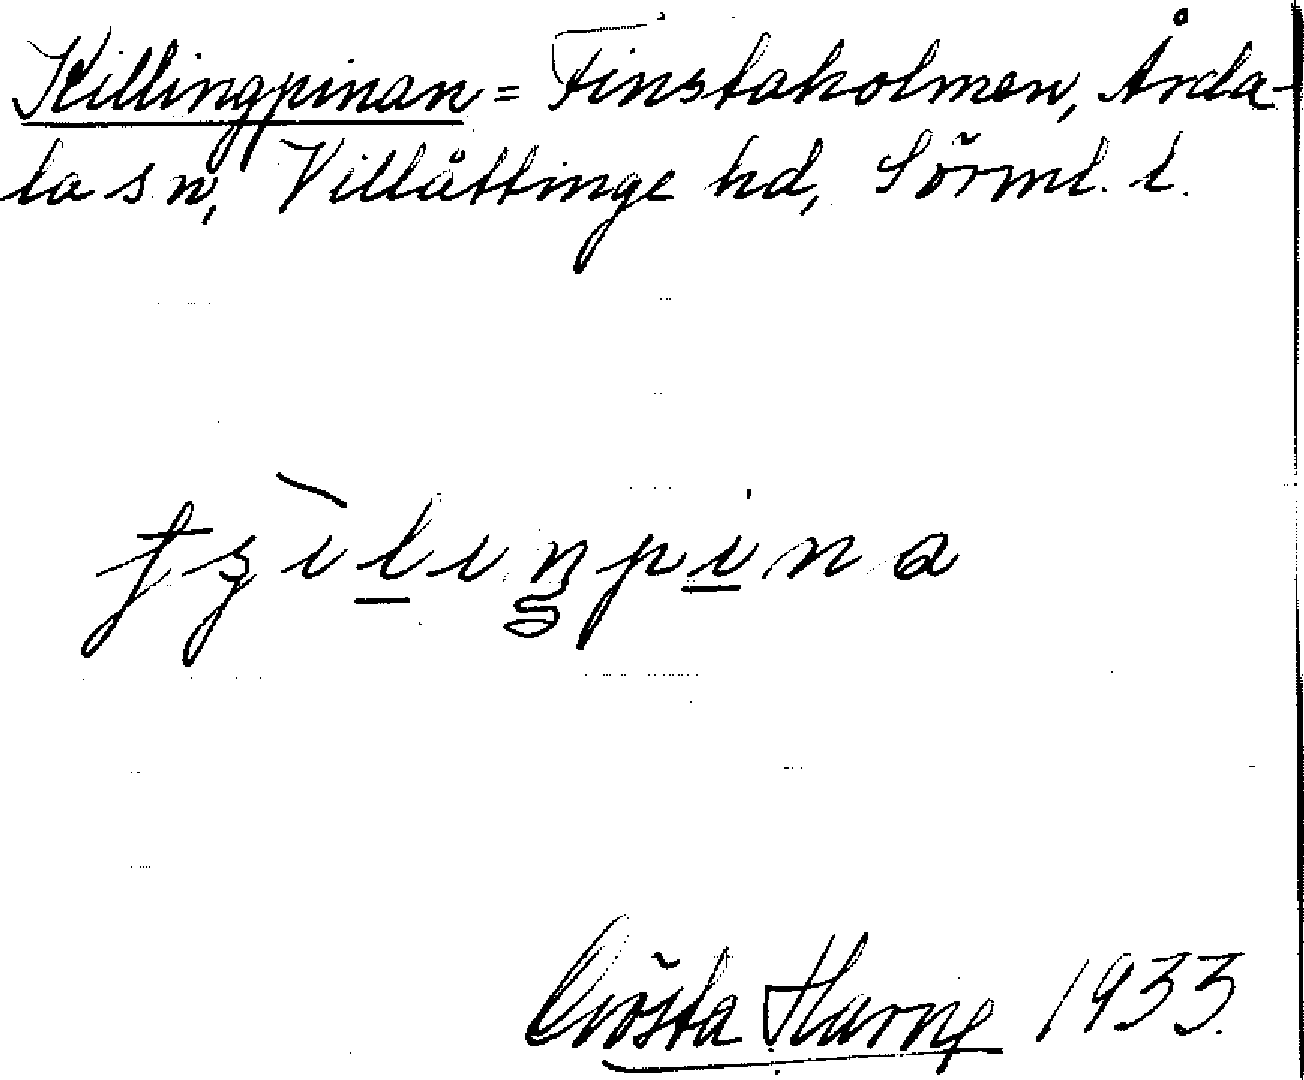 Killingpinan = Finstaholmen, Årda-
la sn, Villåttinge hd, Sörml. l.
Gösta Harne 1933.